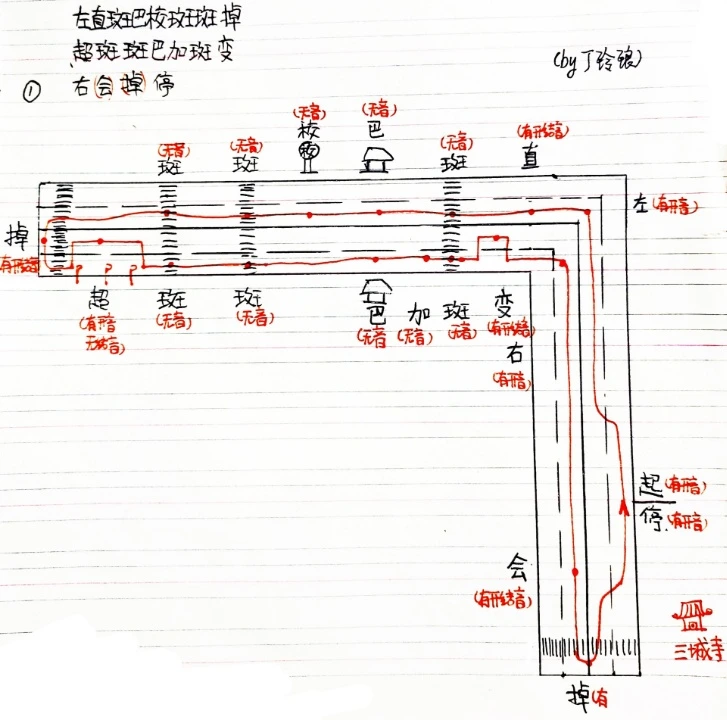 左直斑巴校斑斑掉
超斑斑巴加斑变
① 右(会掉)停
(by 丁玲琅)
(无音) 斑
(无音) 斑
(无音) 校
(无音) 巴
(无音) 斑
(有开结音) 直
左(有开音)
掉 (有开结音)
超 (有开音 无结音)
斑 (无音)
斑 (无音)
巴 (无音)
加 (无音)
斑 无音)
变 (有开结音)
右 (有开音)
起(有开音)
停(有开音)
会 (有开结音)
三城寺
掉(有